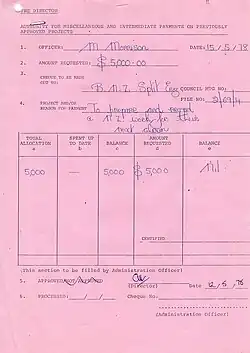 THE DIRECTOR
AUTHORITY FOR MISCELLANEOUS AND INTERMEDIATE PAYMENTS ON PREVIOUSLY
APPROVED PROJECTS
1. OFFICER: M. Morrison DATE: 15/5/78
2. AMOUNT REQUESTED: $ 5,000-00
3. CHEQUE TO BE MADE
OUT TO: B.M.Z. Split Enz COUNCIL MTG NO:
FILE NO: 3/09/4
4. PROJECT AND/OR
REASON FOR PAYMENT: To
a
next
TOTAL ALLOCATION a
SPENT UP TO DATE b
BALANCE c
AMOUNT REQUESTED d
BALANCE e
5,000 — 5,000 $ 5,000 Nil
CERTIFIED
(This section to be filled by Administration Officer)
5. APPROVED/NOT APPROVED (Director) Date 12, 5, 78
6. PROCESSED: / / Cheque No.
(Administration Officer)